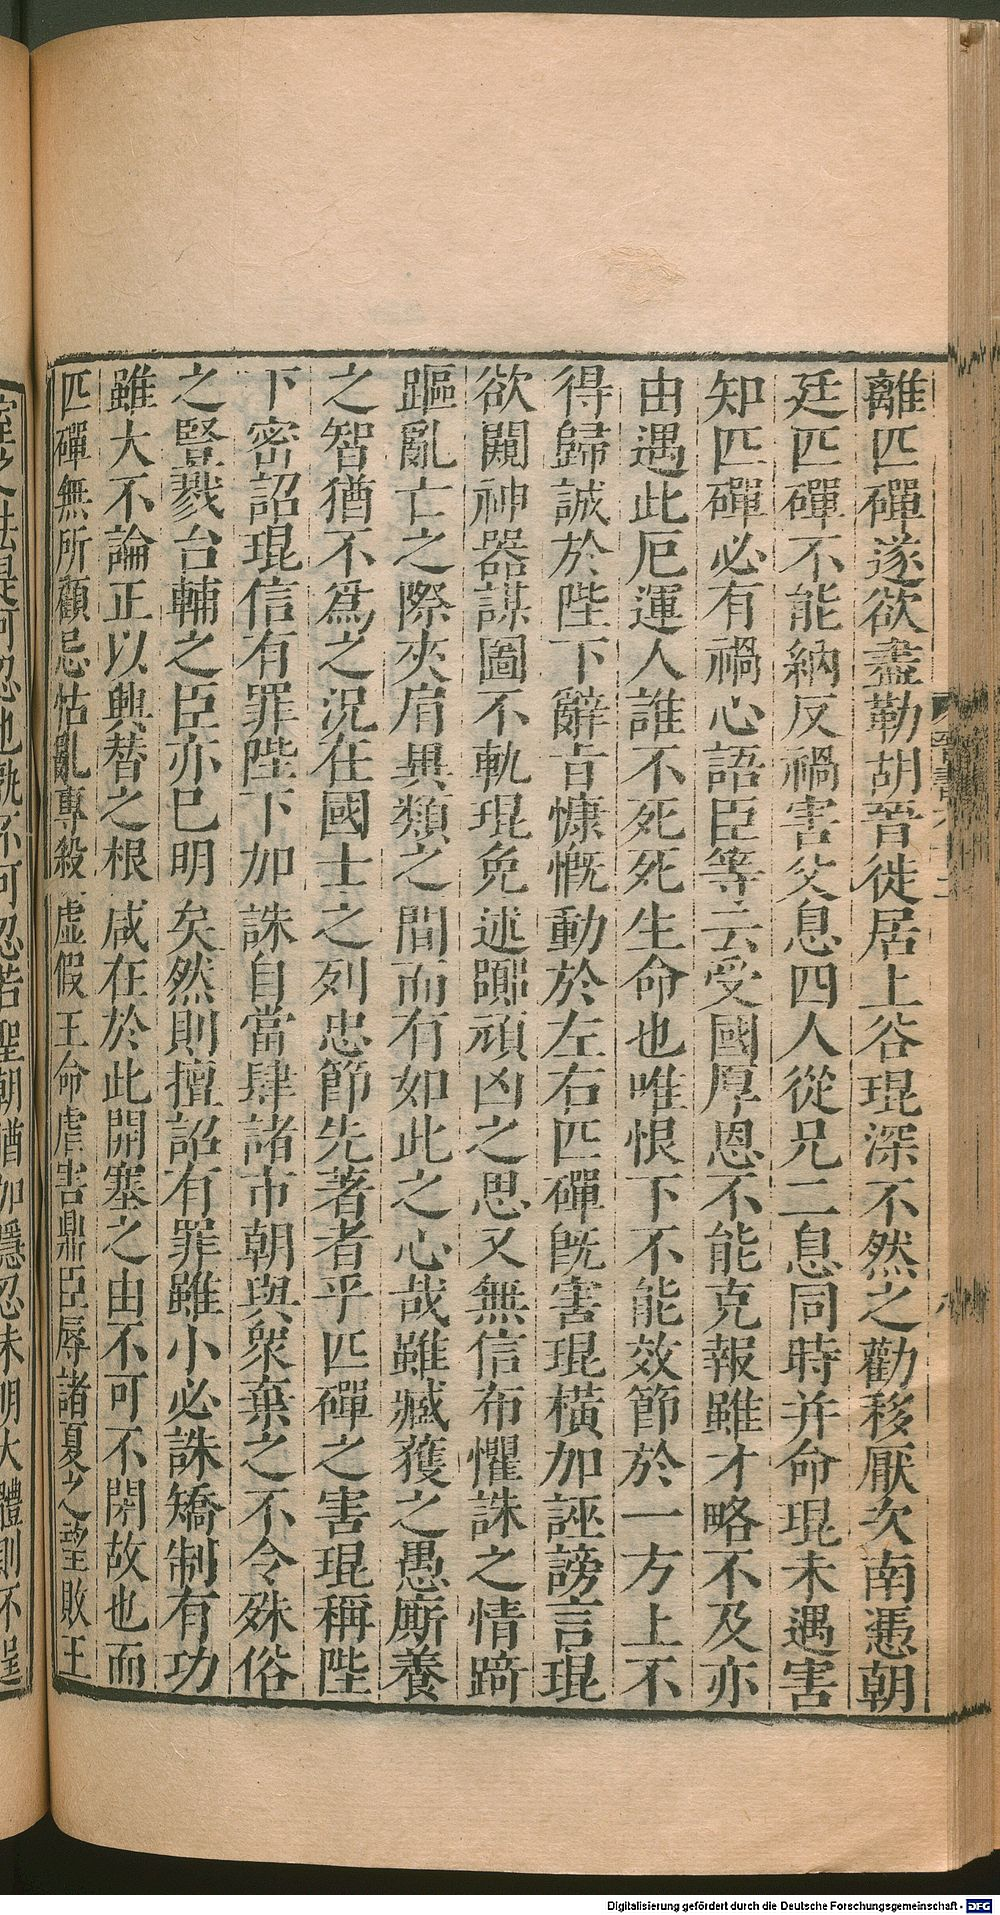 離匹磾遂欲盡勒胡晉徙居上谷琨深不然之勸移厭次南憑朝
廷匹磾不能納反禍害父息四人從兄二息同時并命琨未遇害
知匹磾必有禍心語臣等云受國厚恩不能克報雖才略不及亦
由遇此厄運人誰不死死生命也唯恨下不能效節於一方上不
得歸誠於陛下辭旨慷慨動於左右匹磾既害琨橫加誣謗言琨
欲闚神器謀圖不軌琨免述囂頑凶之思又無信布懼誅之情踦
䠓亂亡之際夾肩異類之間而有如此之心哉雖臧獲之愚厮養
之智猶不爲之況在國士之列忠節先著者乎匹磾之害琨稱陛
下密詔琨信有罪陛下加誅自當肆諸市朝與衆棄之不令殊俗
之豎戮台輔之臣亦已明矣然則擅詔有罪雖小必誅矯制有功
雖大不論正以興替之根咸在於此開塞之由不可不閑故也而
匹磾無所顧忌怙亂專殺虛假王命虐害鼎臣辱諸夏之望敗王
忍也孰不可忍若聖朝猶加隱忍未明大體則不逞
Digitalisierung gefördert durch die Deutsche Forschungsgemeinschaft - DFG